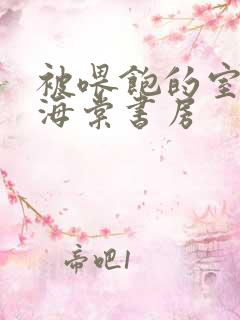 被喂饱的室
海棠书房
帝吧1